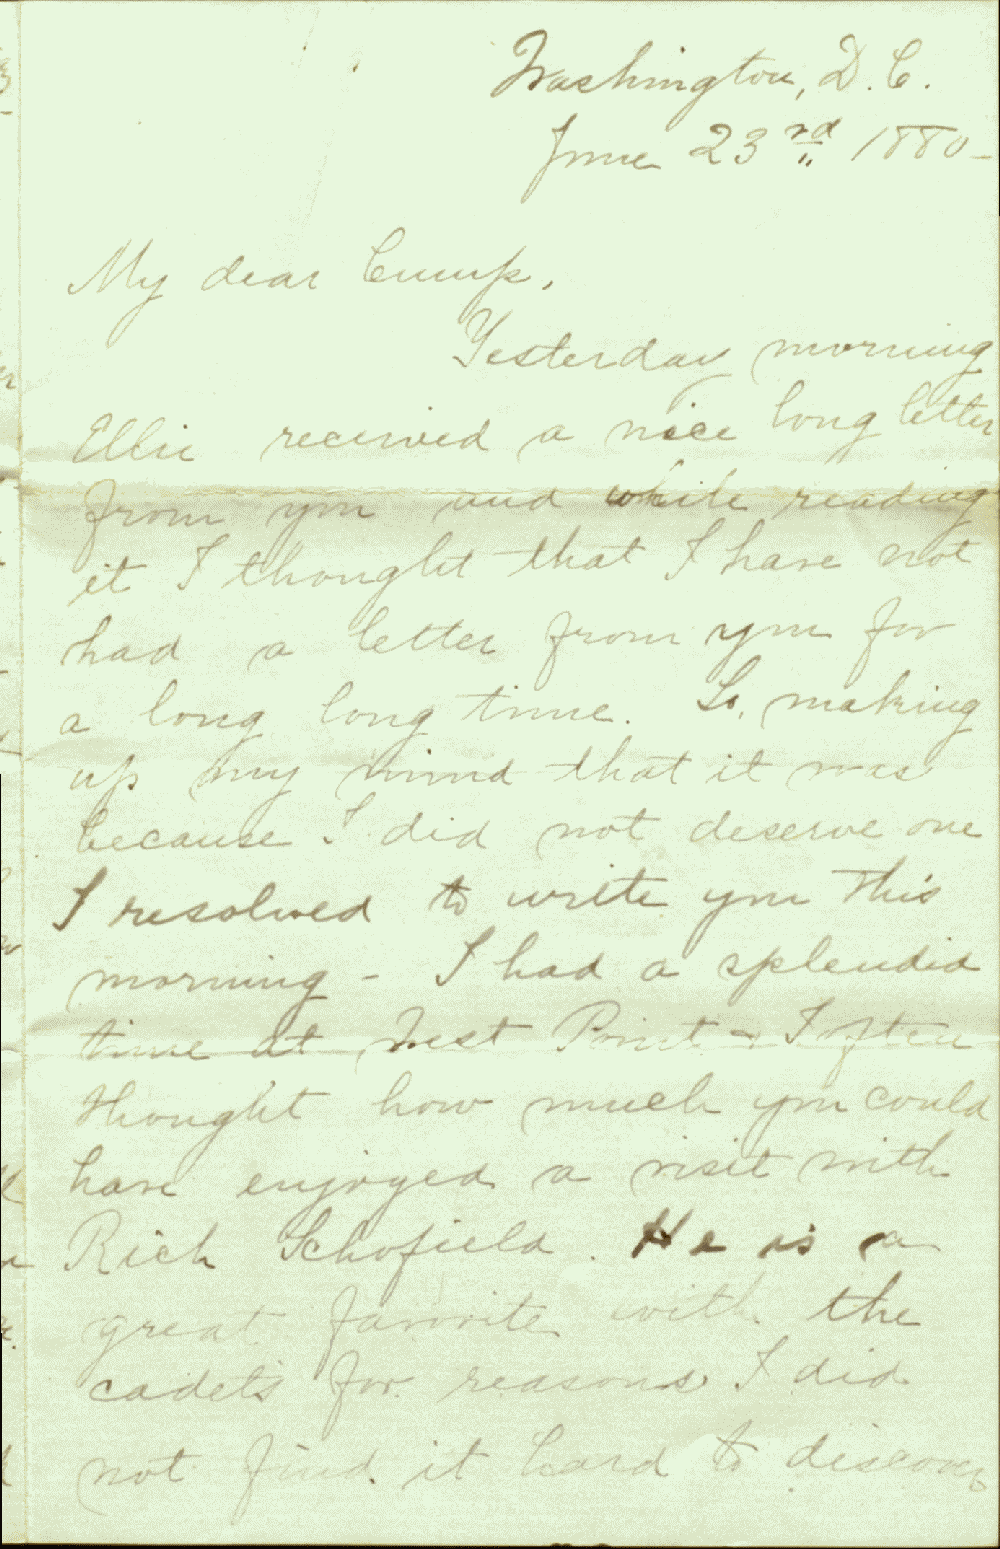 Washington, D.C.
June 23rd 1880-
My dear Cump,
Yesterday morning
Ellie received a nice long letter
from you and while reading
it I thought that I have not
had a letter from you for
a long long time. So, making
up my mind that it was
because I did not deserve one
I resolved to write you this
morning - I had a splendid
time at West Point & I often
thought how much you could
have enjoyed a visit with
Rich Schofield. He is a
great favorite with the
cadets for reasons I did
not find it hard to discover